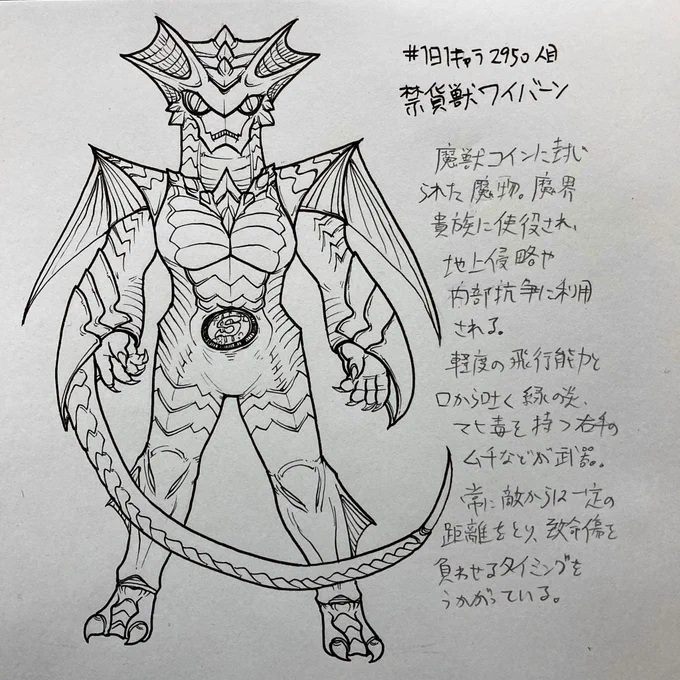 #1日1キャラ 2950人目
禁貨獣ワイバーン
魔獣コインに封じ
られた魔物。魔界
貴族に使役され、
地上侵略や
内部抗争に利用
される。
軽度の飛行能力と
口から吐く緑の炎、
マヒ毒を持つ右手の
ムチなどが武器。
常に敵からは一定の
距離をとり、致命傷を
負わせるタイミングを
うかがっている。
S